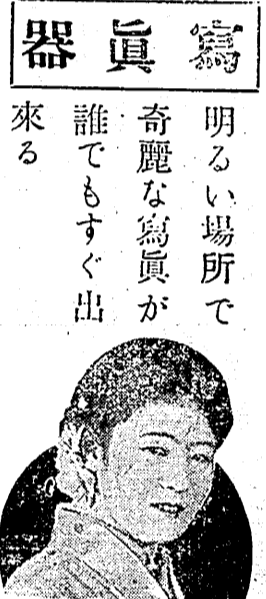 寫眞器
明るい場所で
奇麗な寫眞が
誰でもすぐ出
來る